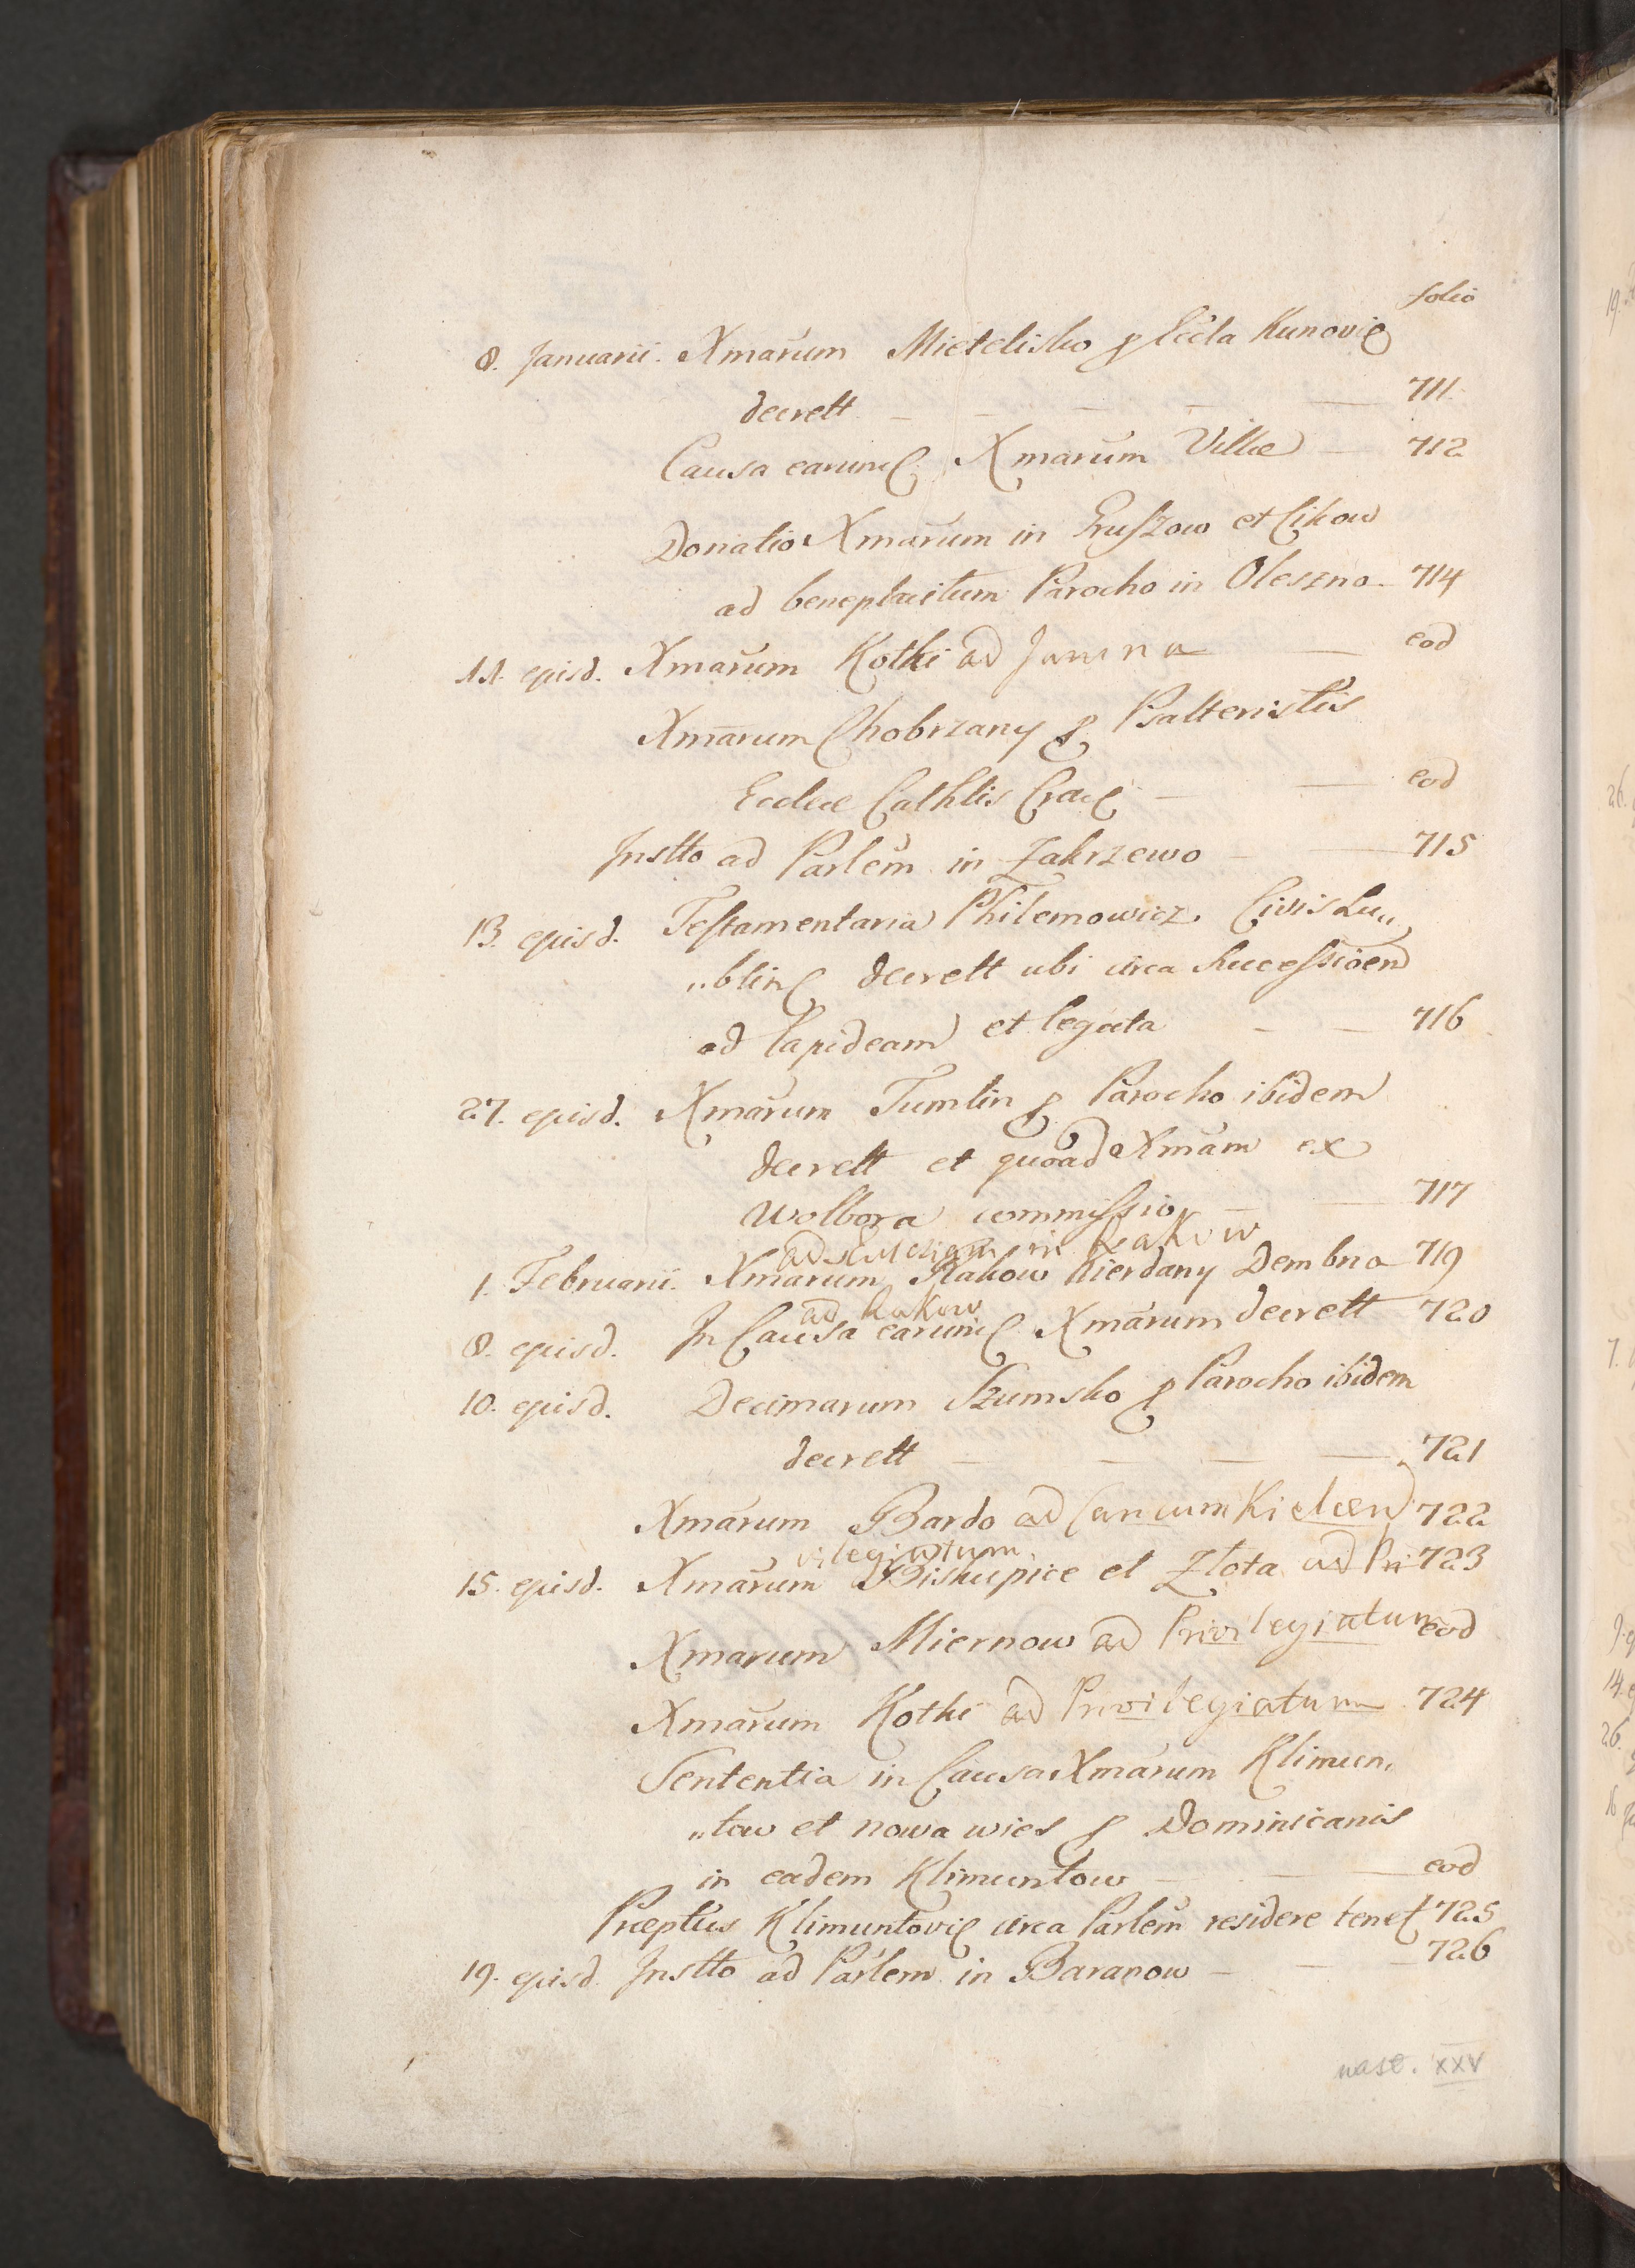 folio
8. Januarii. Xmarum Mietelisko p Eccla Kunovie
decrett — — — — — 711.
Causa earund Xmarum Villae — 712
Donatio Xmarum in Gruszow et Cikow
ad beneplacitum Parocho in Oleszno. 714
11. ejusd. Xmarum Kotki ad Janina — eod
Xmarum Chobrzany p Psalteristis
Ecclae Cathlis Crac — — eod
Instto ad Parlem in Zakrzewo — — 715
13. ejusd. Testamentaria Philemowicz. Civis Lu„
„blin decrett ubi circa Successioem
ad lapideam et legata — — 716
27. ejusd. Xmarum Tumlin p Parocho ibidem
decrett et quoad Xmam ex
Wolbora commissio — — 717
ad in Rakow
1. Februarii. Xmarum Rakow Kierdany Dembno 719
ad Rakow
8. ejusd. In Causa earund Xmarum decrett 720
10. ejusd. Decimarum Szumsko p Parocho ibidem
decrett — — — — 721
Xmarum Bardo ad Cancum Kielcen 722
vilegiatum
15. ejusd. Xmarum Biskupice et Złota ad Pri 723
Xmarum Miernow ad Privilegiatum eod
Xmarum Kotki ad Privilegiatum 724
Sententia in Causa Xmarum Klimun„
„tow et nowa wies p Dominicanis
in eadem Klimuntow — — eod
Praeptus Klimuntovi circa Parlem residere tenet 725
19. ejusd. Instto ad Parlem in Baranow — — — 726
nast. XXV